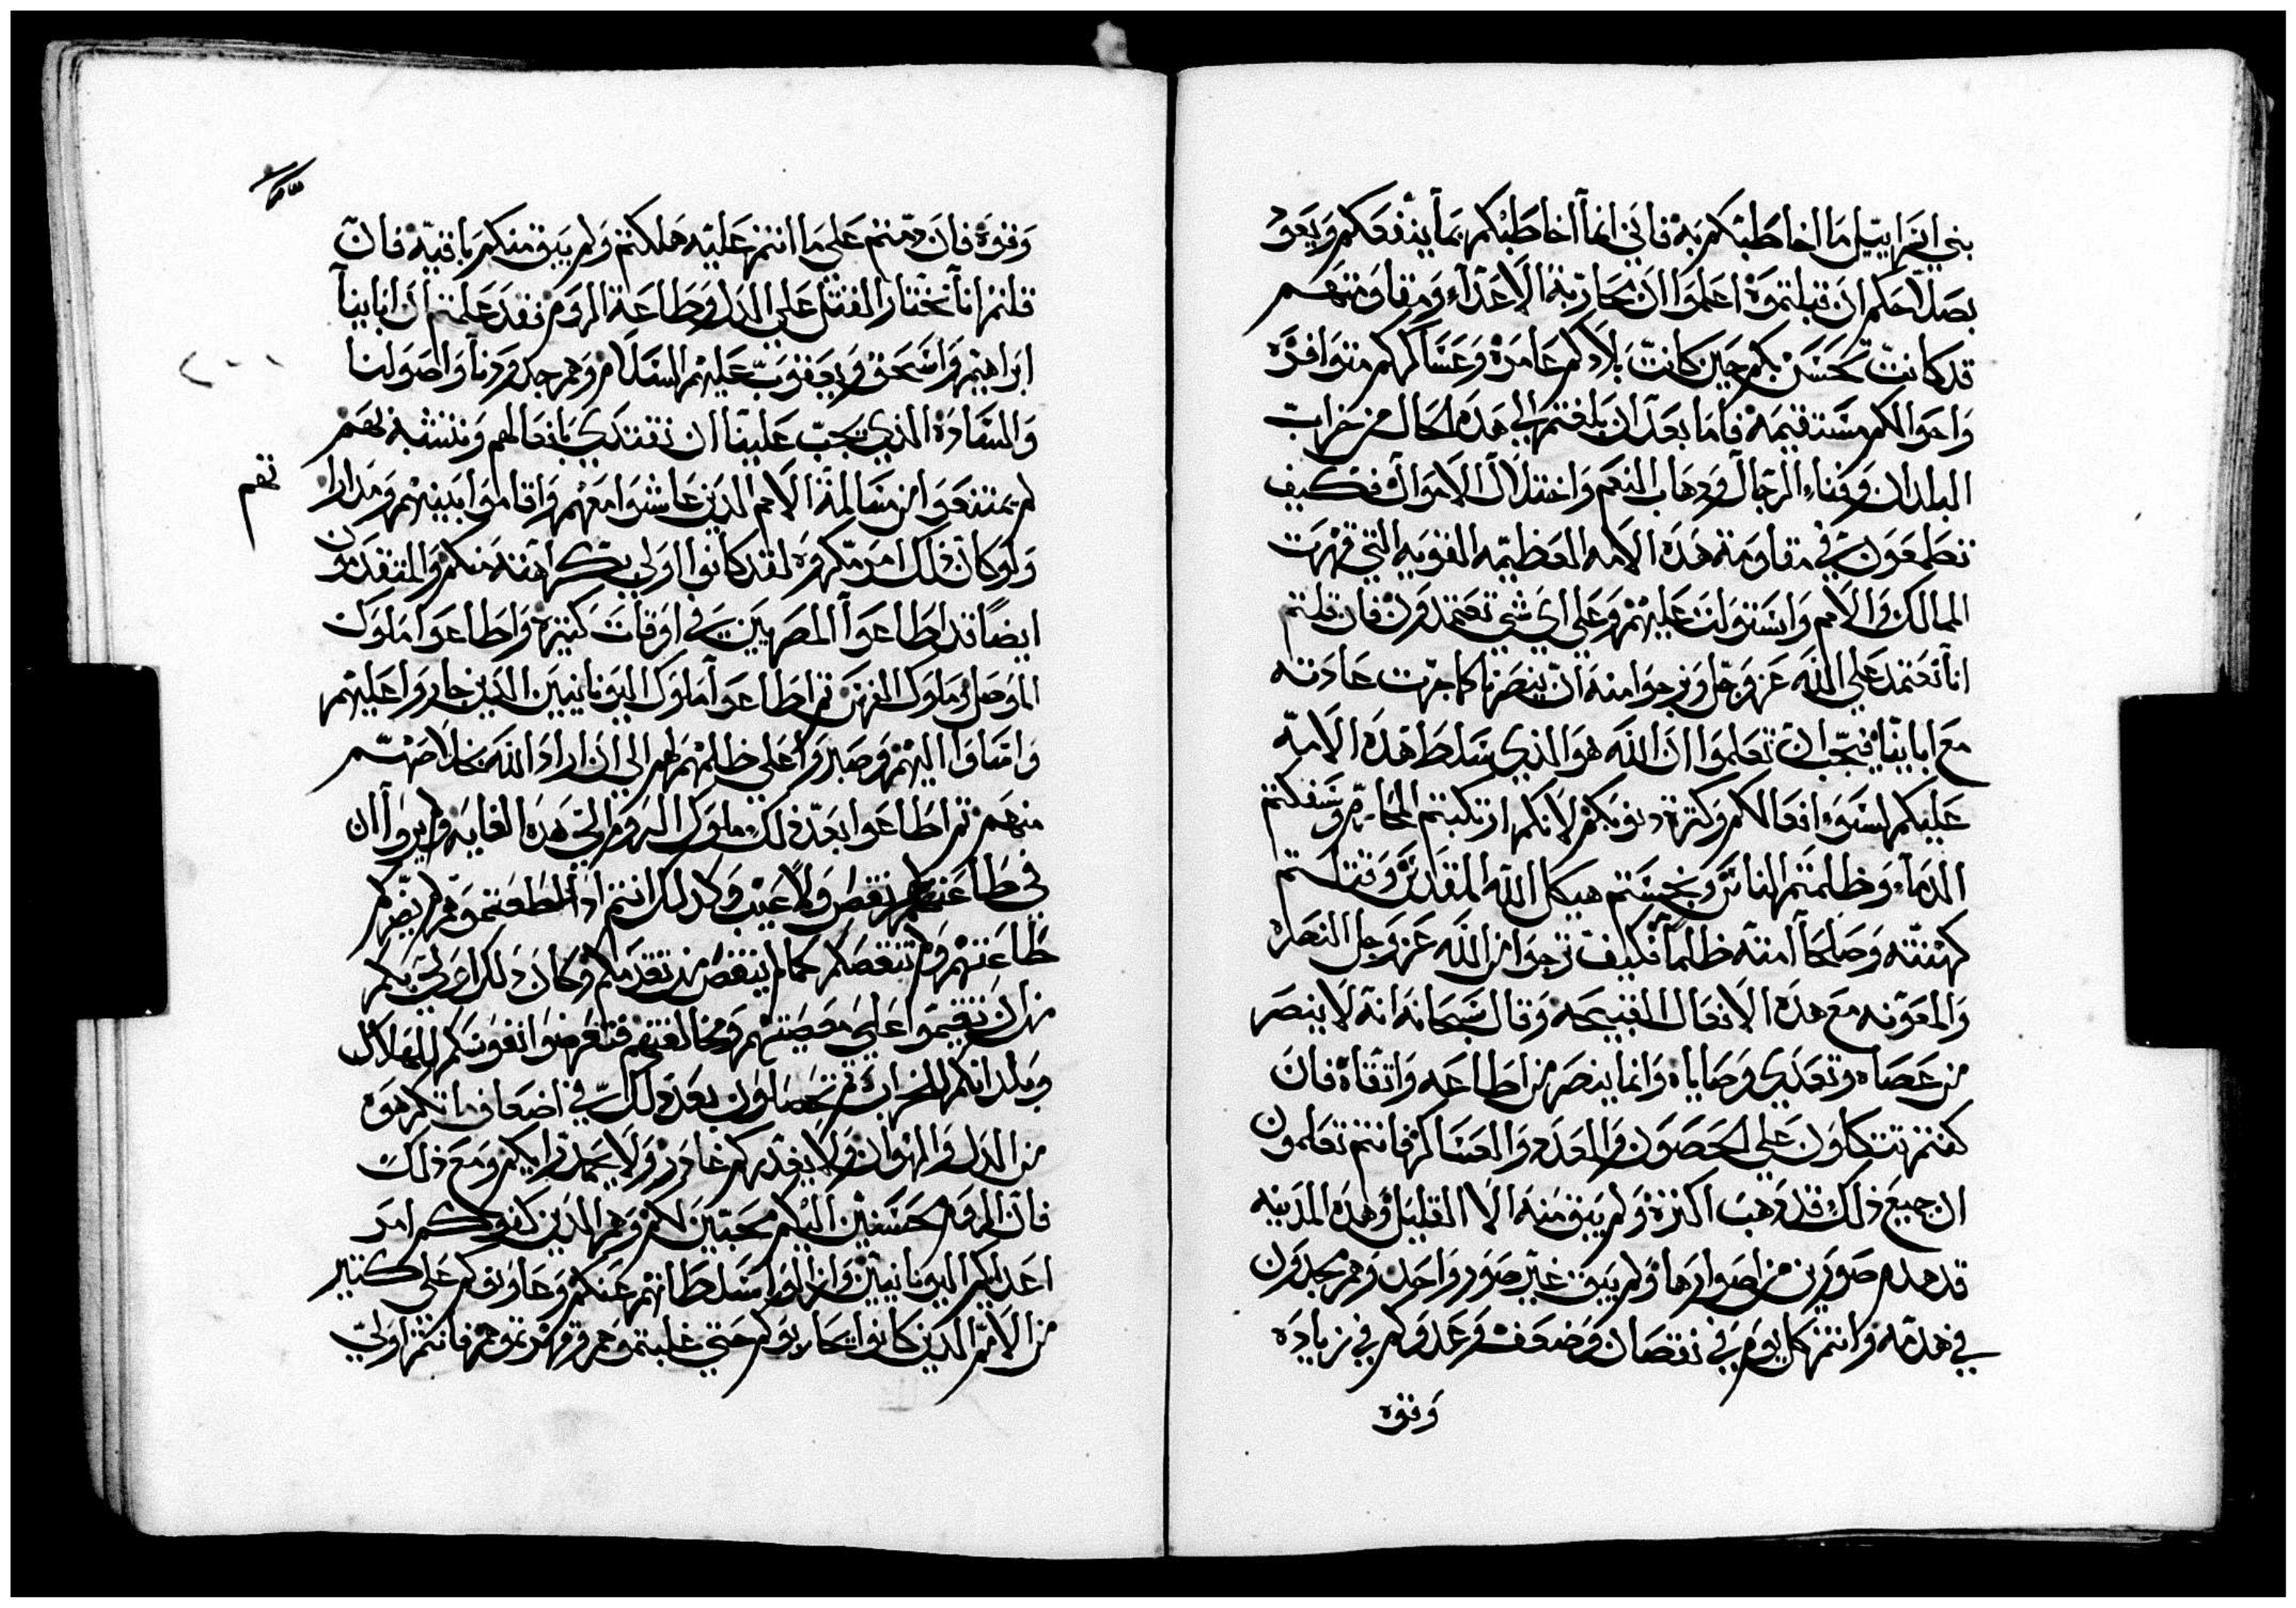 بني اسراييل ما اخاطبكم به فاني انما اخاطبكم بما ينفعكم ويعود
بصلاحكم ان قبلتموه اعلموا ان محاربة الاعداء ومقاومتهم
قد كانت تحسن بكم حين كانت بلادكم عامره وعساكركم متوافره
واحوالكم مستقيمه فاما بعد ان بلغتم الي هذه الحال من خراب
البلدان وفناء الرجال وذهاب النعم واختلال الاموال فكيف
تطمعون في مقاومة هذه الامه العظيمه القويه التي قهرت
الممالك والامم واستولت عليهم وعلي اي شي تعتمدون فان قلتم
انا نعتمد علي الله عز وجل ونرجوا منه ان ينصرنا كما جرت عادته
مع اباينا فيجب ان تعلموا ان الله هو الذي سلط هذه الامه
عليكم لسوء افعالكم وكثرة ذنوبكم لانكم ارتكبتم المحارم وسفكتم
الدماء وظلمتم الناس ونجستم هيكل الله المقدس وقتلتم
كهنته وصلحا امته ظلما فكيف ترجوا من الله عز وجل النصره
والمعونه مع هذه الافعال القبيحه وقال سبحانه انه لا ينصر
من عصاه وتعدي وصاياه وانما ينصر من اطاعه واتقاه فان
كنتم تتكلون علي الحصون والعدد والعساكر فانتم تعلمون
ان جميع ذلك قد ذهب اكثره ولم يبق منه الا القليل وهذه المدينه
قد هدم صورين من اصوارها ولم يبق غير صور واحد وهم يجدون
في هدمه وانتم كل يوم في نقصان وضعف وعدوكم في زياده
وقوه
وقوه فان دمتم علي ما انتم عليه هلكتم ولم يبق منكم باقيه فان
قلتم انا نختار القتل علي الذل وطاعة الروم فقد علمتم ان اباينا
ابراهيم واسحق ويعقوب عليهم السلام وهم جدودنا واصولنا
والساده الذي يجب علينا ان نقتدي بافعالهم ونتشبه بهم
لم يمتنعوا من مسالمة الامم الذين عاشوا معهم واقاموا بينهم ومداراتهم
ولو كان ذلك امر مكروه لقد كانوا اولي بكراهته منكم والمتقدمون
ايضا قد اطاعوا المصريين في اوقات كثيره واطاعوا ملوك
الموصل وملوك الفرس ثم اطاعوا ملوك اليونانيين الذين جاروا عليهم
واساوا اليهم وصبروا علي ظلمهم لهم الي ان اراد الله بخلاصهم
منهم ثم اطاعوا بعد ذلك ملوك الروم الي هذه الغايه ولم يروا ان
في طاعتهم نقص ولا عيب وكذلك انتم اذا اطعتموهم لم يضركم
طاعتهم ولم تنقصكم كما لم ينقص من تقدمكم وكان ذلك اولي بكم
من ان تقيموا علي معصيتهم ومخالفتهم فتعرضوا نفوسكم للهلاك
وبلدانكم للخراب ثم تحصلون بعد ذلك في اضعاف ما تكرهوه
من الذل والهوان ولا يعذركم عاذر ولا يحمد رايكم ومع ذلك
فان الروم محسنين اليكم محبين لكم وهم الذين كفوكم امر
اعدايكم اليونانيين وازالوا سلطانهم عنكم وعاونوكم علي كثير
من الامم الذين كانوا يحاربوكم حتي غلبتموهم وقهرتموهم فانتم اولي